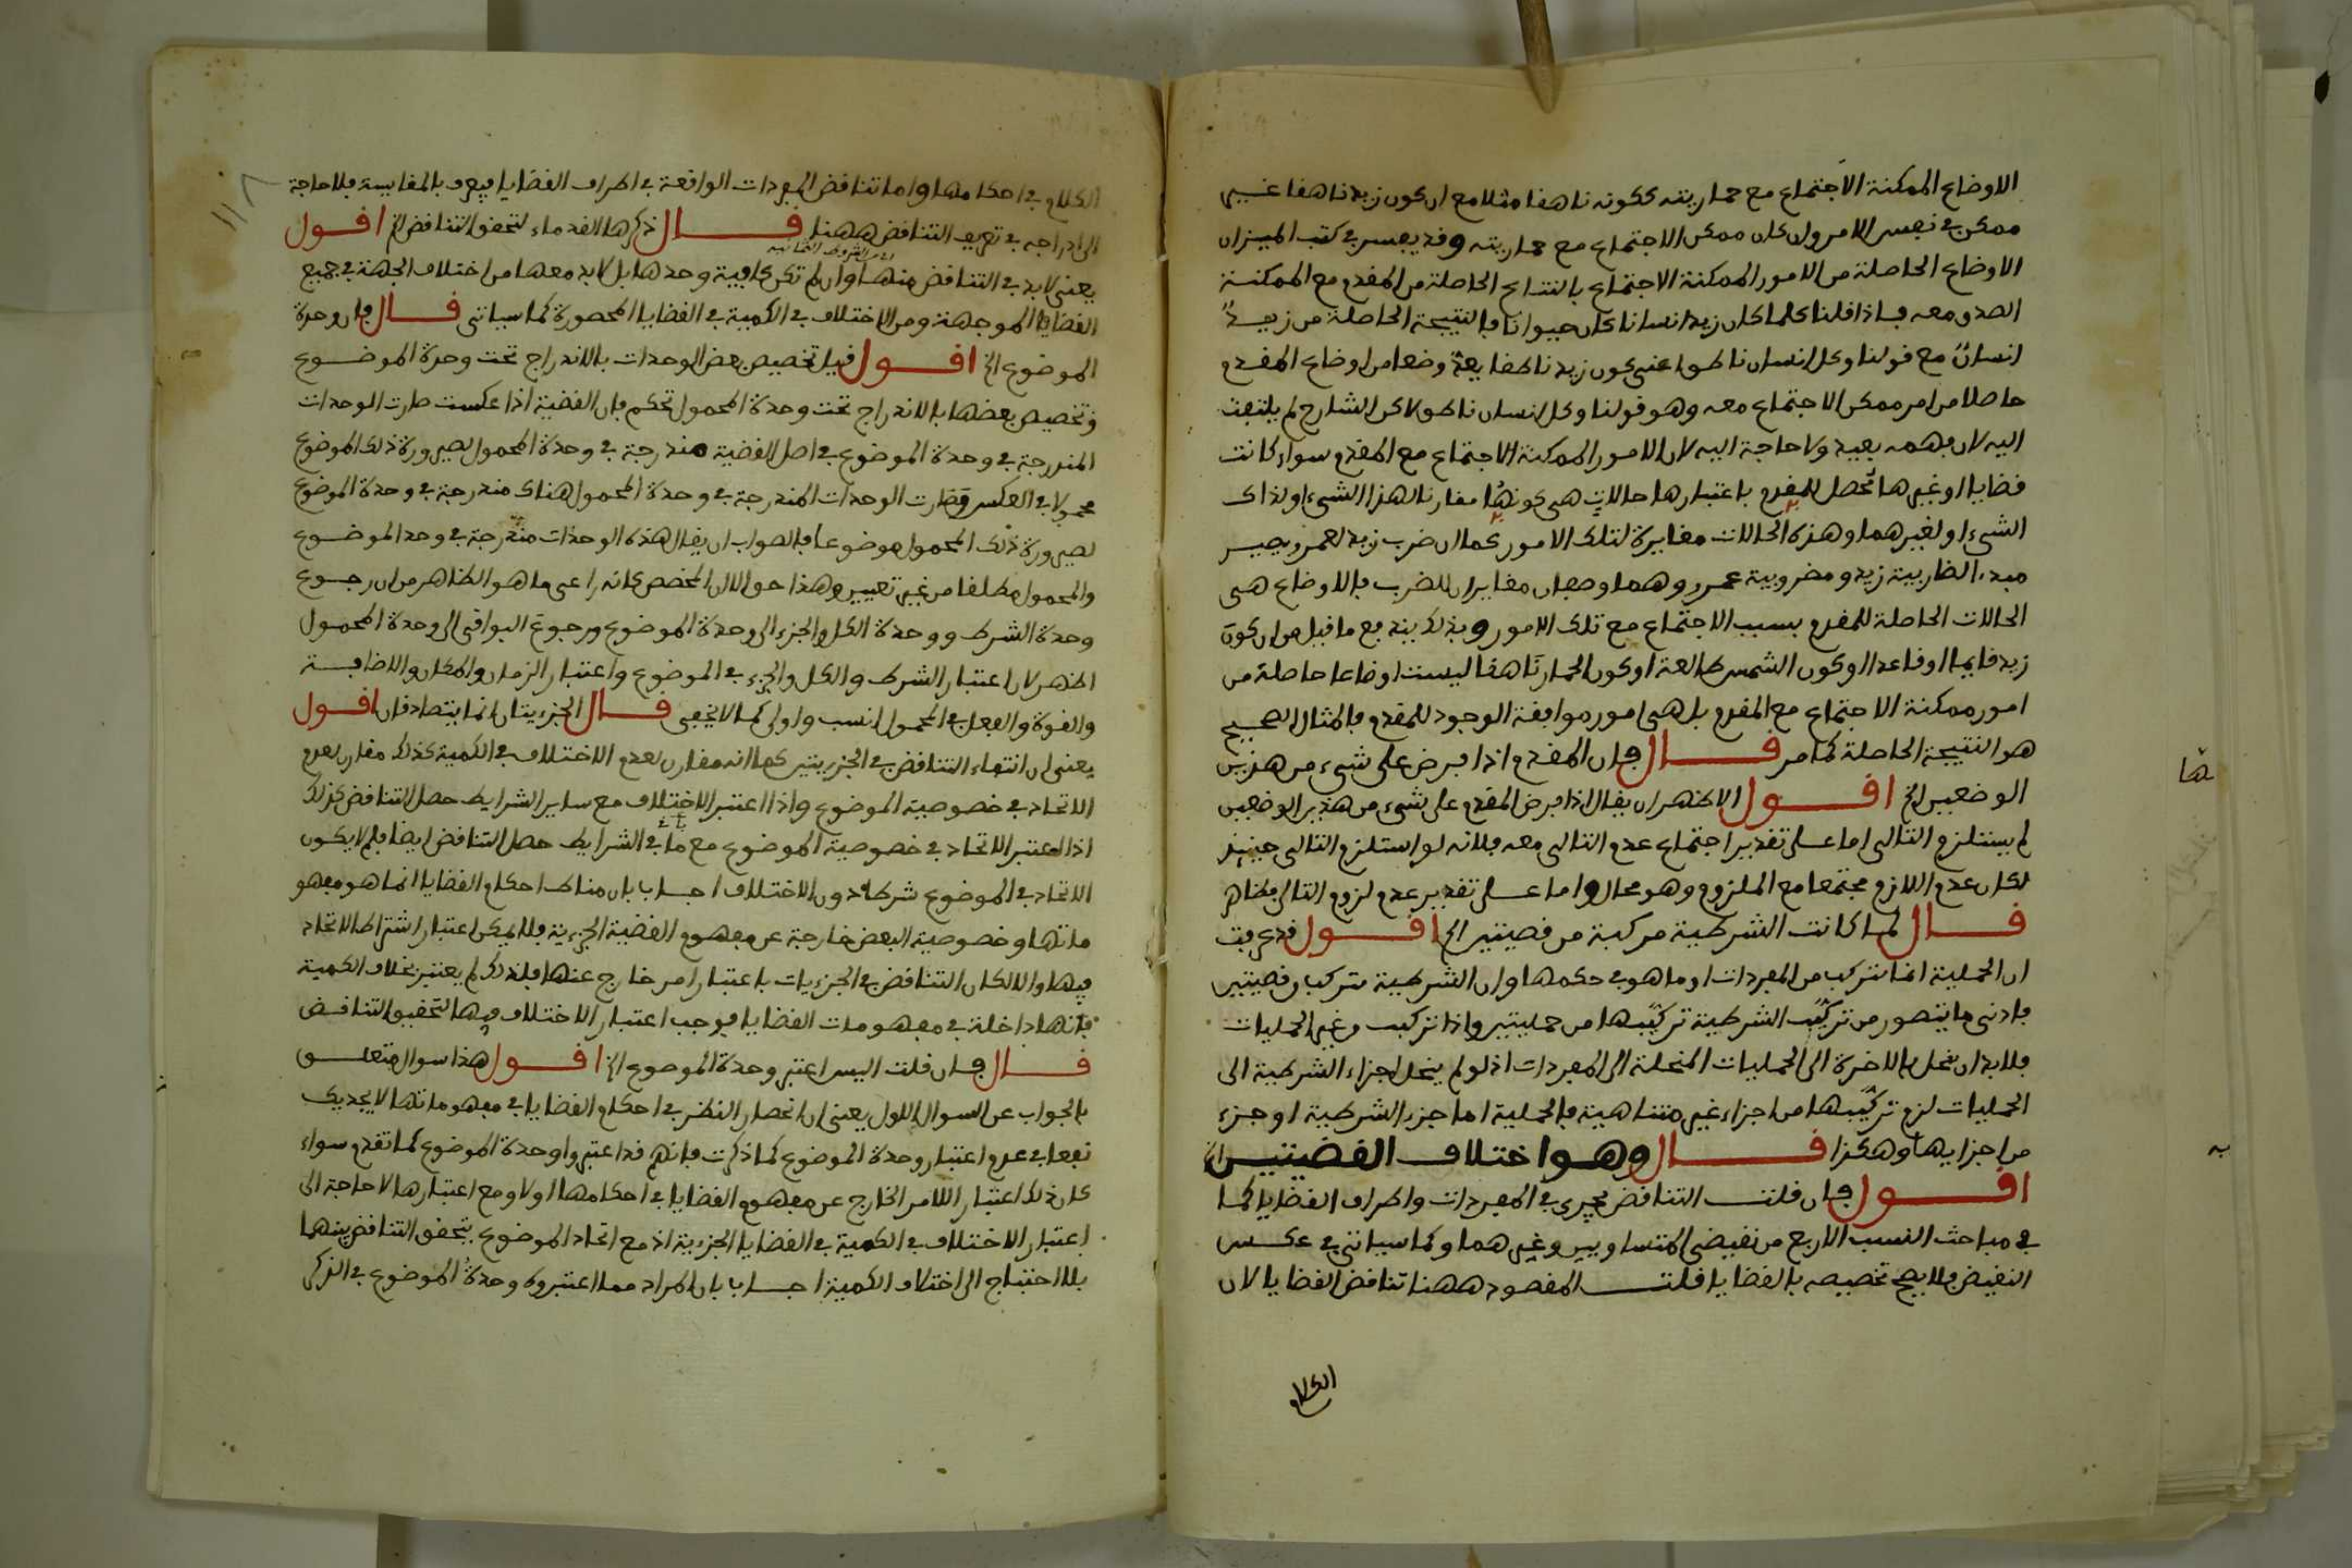 الاوضاع الممكنة الاجتماع مع حماريته ككونه ناهقا مثلا مع ان كون زيد ناهقا غير
ممكن في نفس الامر وان كان ممكن الاجتماع مع حماريته وقد يفسر في كتب الميزان
الاوضاع الحاصلة من الامور الممكنة الاجتماع بالنتائج الحاصلة من المقدم مع الممكنة
الصدق معه فاذا قلنا كلما كان زيد انسانا كان حيوانا فالنتيجة الحاصلة من زيد
انسان مع قولنا وكل انسان ناطق اعني كون زيد ناطقا يعد وضعا من اوضاع المقدم
حاصلا من امر ممكن الاجتماع معه وهو قولنا وكل انسان ناطق لاكن الشارح لم يلتفت
اليه لان فهمه بعيد ولا حاجة اليه لان الامور الممكنة الاجتماع مع المقدم سواء كانت
قضايا او غيرها تحصل للمقدم باعتبارها حالات هي كونها مقارنا لهذا الشيء او لذاك
الشيء او لغيرهما وهذه الحالات مغايرة لتلك الامور كما ان ضرب زيد لعمرو يصير
مبدء الضاربية زيد ومضروبية عمرو وهما وصفان مغايران للضرب فالاوضاع هي
الحالات الحاصلة للمقدم بسبب الاجتماع مع تلك الامور وبذلك يندفع ما قيل من ان كون
زيد قايما او قاعدا او كون الشمس طالعة او كون الحمار ناهقا ليست اوضاعا حاصلة من
امور ممكنة الاجتماع مع المقدم بل هي امور موافقة الوجود للمقدم فالمثال الصحيح
هو النتيجة الحاصلة كما مر قال فان المقدم اذا فرض على شيء من هذين
الوضعين الخ اقول الاظهر ان يقال اذا فرض المقدم على شيء من هذين الوضعين
لم يستلزم التالي اما على تقدير اجتماع عدم التالي معه فلانه لو استلزم التالي حينئذ
لكان عدم اللازم مجتمعا مع الملزوم وهو محال واما على تقدير عدم لزوم التالي فظاهر
قال لما كانت الشرطية مركبة من قضيتين الخ اقول قد عرفت
ان الحملية انما تتركب من المفردات او ما هو في حكمها وان الشرطية تتركب من قضيتين
فادنى ما يتصور من تركب الشرطية تركبها من حمليتين واذا تركبت من غير الحمليات
فلا بد ان تنحل بالاخرة الى الحمليات المنحلة الى المفردات اذ لو لم ينحل اجزاء الشرطية الى
الحمليات لزم تركبها من اجزاء غير متناهية فالحملية اما جزء الشرطية او جزء
من اجزايها وهكذا قال وهو اختلاف القضيتين الخ
اقول فان قلت التناقض يجري في المفردات واطراف القضايا كما
في مباحث النسب الاربع من نقيضي المتساويين وغيرهما وكما سياتي في عكس
النقيض فلا يصح تخصيصه بالقضايا قلت المقصود ههنا تناقض القضايا لان
الكلام
ها
به
الكلام في احكامها واما تناقض المفردات الواقعة في اطراف القضايا فيعرف بالمقايسة فلا حاجة
الى ادراجه في تعريف التناقض ههنا قال ذكرها القدماء لتحقق التناقض الخ اقول
اي من الشروط الثمانية
يعني لا بد في التناقض منها وان لم تكن كافية وحدها بل لا بد معها من اختلاف الجهة في جميع
القضايا الموجهة ومن الاختلاف في الكمية في القضايا المحصورة كما سياتي قال فان وحدة
الموضوع الخ اقول قيل تخصيص بعض الوحدات بالاندراج تحت وحدة الموضوع
وتخصيص بعضها بالاندراج تحت وحدة المحمول تحكم فان القضية اذا عكست صارت الوحدات
المندرجة في وحدة الموضوع في اصل القضية مندرجة في وحدة المحمول لصيرورة ذلك الموضوع
محمولا في العكس وصارت الوحدات المندرجة في وحدة المحمول هناك مندرجة في وحدة الموضوع
لصيرورة ذلك المحمول موضوعا فالصواب ان يقال هذه الوحدات مندرجة في وحد الموضوع
والمحمول مطلقا من غير تعيين وهذا حق الا ان المخصص كانه راعى ما هو الظاهر من ان رجوع
وحدة الشرط ووحدة الكل والجزء الى وحدة الموضوع ورجوع البواقي الى وحدة المحمول
اظهر لان اعتبار الشرط والكل والجزء في الموضوع واعتبار الزمان والمكان والاضافة
والقوة والفعل في المحمول انسب واولى كما لا يخفى قال الجزءيتان انما يتصادقان اقول
يعني ان انتفاء التناقض في الجزءيتين كما انه مقارن لعدم الاختلاف في الكمية كذلك مقارن لعدم
الاتحاد في خصوصية الموضوع واذا اعتبر الاختلاف مع ساير الشرايط حصل التناقض كذلك
اذا اعتبر الاتحاد في خصوصية الموضوع مع باقي الشرايط حصل التناقض ايضا فلم لا يكون
الاتحاد في الموضوع شرطا دون الاختلاف اجاب بان مناط احكام القضايا انما هو مفهو
ماتها وخصوصية البعض خارجة عن مفهوم القضية الجزءية فلا يمكن اعتبار اشتراط الاتحاد
فيها والا لكان التناقض في الجزءيات باعتبار امر خارج عنها فلذلك لم يعتبر بخلاف الكمية
فانها داخلة في مفهومات القضايا فوجب اعتبار الاختلاف فيها لتحقيق التناقض
قال فان قلت اليس اعتبر وحدة الموضوع الخ اقول هذا سوال متعلق
بالجواب عن السوال الاول يعني ان انحصار النظر في احكام القضايا في مفهوماتها لا يجديك
نفعا في عدم اعتبار وحدة الموضوع كما ذكرت فانهم قد اعتبروا وحدة الموضوع كما تقدم سواء
كان ذلك اعتبار الامر الخارج عن مفهوم القضايا في احكامها او لا ومع اعتبارها لا حاجة الى
اعتبار الاختلاف في الكمية في القضايا الجزءية اذ مع اتحاد الموضوع يتحقق التناقض بينهما
بلا احتياج الى اختلاف الكمية اجاب بان المراد مما اعتبروه وحدة الموضوع في الذكر